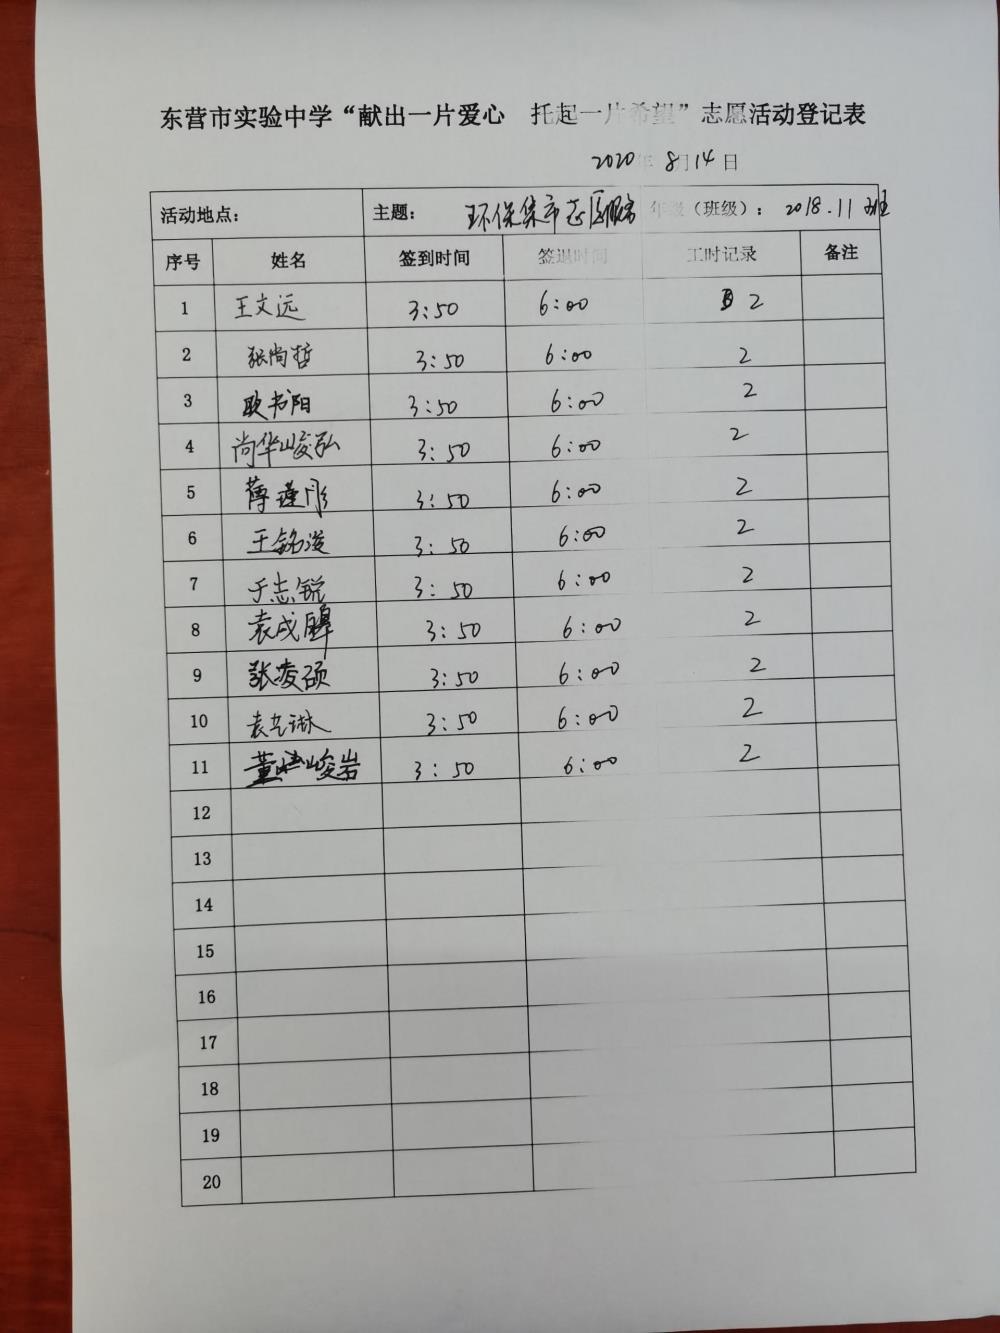 东营市实验中学“献出一片爱心 托起一片希望”志愿活动登记表
2020年 8月14日
活动地点： 主题： 环保集市志愿服务 年级（班级）： 2018.11班
序号 姓名 签到时间 签退时间 工时记录 备注
1 王文远 3:50 6:00 2
2 张尚哲 3:50 6:00 2
3 耿书阳 3:50 6:00 2
4 尚华峻弘 3:50 6:00 2
5 3:50 6:00 2
6 王铭浚 3:50 6:00 2
7 于志锐 3:50 6:00 2
8 袁成 3:50 6:00 2
9 张凌硕 3:50 6:00 2
10 袁艺琳 3:50 6:00 2
11 董 峻岩 3:50 6:00 2
12
13
14
15
16
17
18
19
20